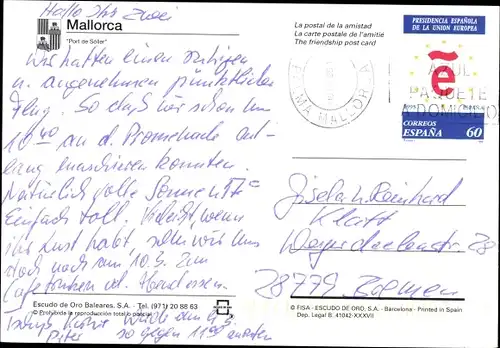 Hallo Ihr zwei
Mallorca
"Port de Sóller"
Wir hatten einen ruhigen
u. angenehmen pünktlichen
Flug. So daß wir schon um
10 an d. Promenade ent-
lang marschieren konnten.
Natürlich volle Sonne
Einfach toll. Vielleicht, wenn
ihr Lust habt, sehen wir uns
doch noch zum 10.
Kaffeetrinken od. Abendessen.
Escudo de Oro Baleares, S.A. - Tel. (971) 20 88 63
© Prohibida la reproducción total o parcial
so gegen 11
La postal de la amistad
La carte postale de l'amitié
The friendship post card
PRESIDENCIA ESPAÑOLA
DE LA UNION EUROPEA
PALMA MALLORCA
AZUL
PAQUETE
A DOMICILIO
CORREOS
ESPAÑA 60
Gisela u. Reinhard
Klatt
28
28779 Bremen
© FISA - ESCUDO DE ORO, S.A. - Barcelona - Printed in Spain
Dep. Legal B. 41042-XXXVII